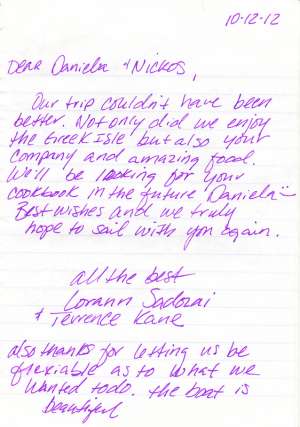 10-12-12
Dear Daniela & Nickos,
Our trip couldn't have been
better. Not only did we enjoy
the Greek Isle but also your
company and amazing food.
We'll be looking for your
cookbook in the future Daniela
Best wishes and we truly
hope to sail with you again.
all the best
Lorann Sadozai
& Terrence Kane
also thanks for letting us be
flexiable as to what we
wanted todo. the boat is
beautiful